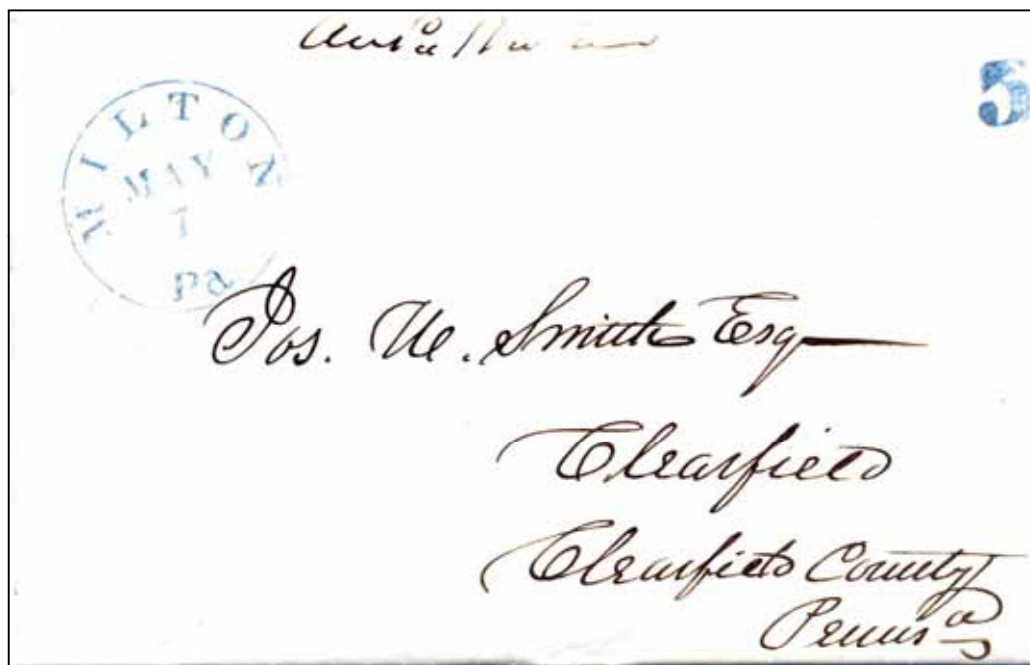 MILTON
MAY
7
Pa
5
Jos. M. Smith Esq
Clearfield
Clearfield County
Pennsa